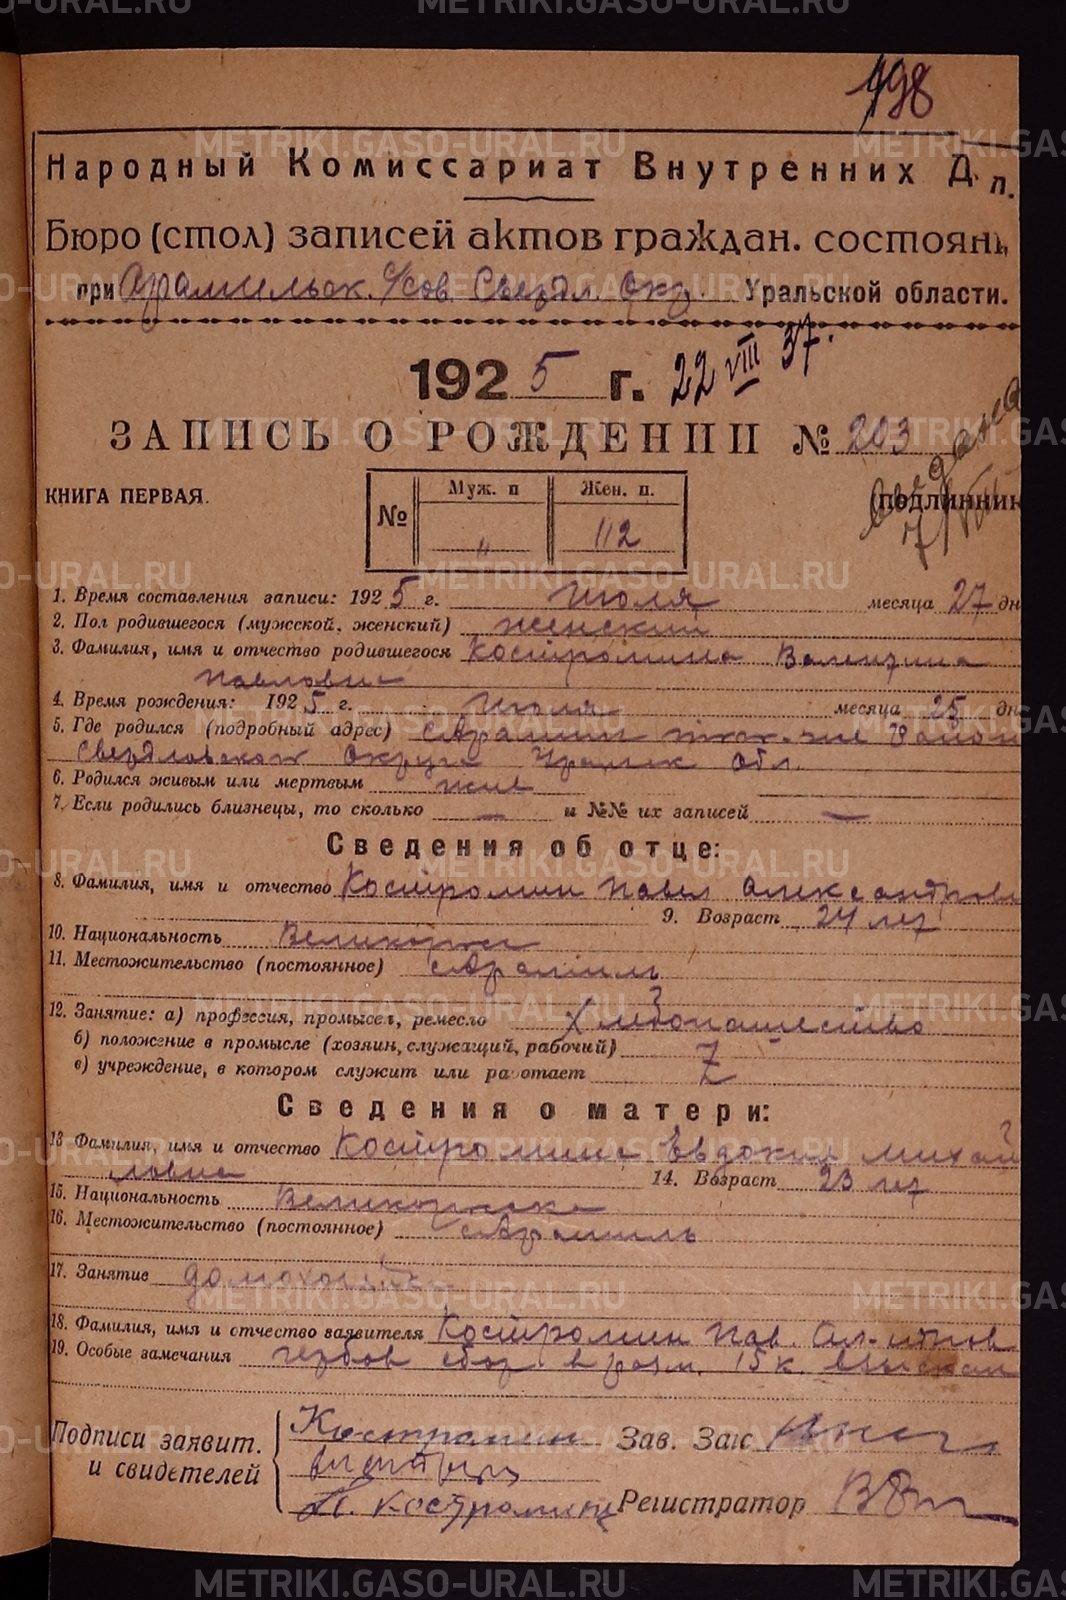 198
Народный Комиссариат Внутренних Д. л.
Бюро (стол) записей актов граждан. состояни
при Арамильск. с/сов. Свердл. Окр. Уральской области.
1925 г. 22 VIII 37.
ЗАПИСЬ О РОЖДЕНИИ № 203
КНИГА ПЕРВАЯ. (подлинник
№ Муж. п Жен. п.
" 112
1. Время составления записи: 1925 г. Июля месяца 27 дн
2. Пол родившегося (мужской, женский) женский
3. Фамилия, имя и отчество родившегося Костромина Валентина
Павловна
4. Время рождения: 1925 г. Июля месяца 25 дн
5. Где родился (подробный адрес) с Арамиль район
Свердловской Округа Уральск Обл.
6. Родился живым или мертвым жив
7. Если родились близнецы, то сколько — и №№ их записей —
Сведения об отце:
8. Фамилия, имя и отчество Костромин Павел Александрови
9. Возраст 24 лет
10. Национальность Великорос
11. Местожительство (постоянное) с Арамиль
12. Занятие: а) профессия, промысел, ремесло Хлебопашество
б) положение в промысле (хозяин, служащий, рабочий)
в) учреждение, в котором служит или работает
Сведения о матери:
13 Фамилия, имя и отчество Костромина Евдокия Михай
ловна 14. Возраст 23 лет
15. Национальность Великороска
16. Местожительство (постоянное) с Арамиль
17. Занятие домохозяйка
18. Фамилия, имя и отчество заявителя Костромин Пав. Ал-дров
19. Особые замечания гербов сбор в разм. 15 к. взыскан
Подписи заявит. Костромин Зав. Загс
и свидетелей
П. Костромин Регистратор
METRIKI.GASO-URAL.RU